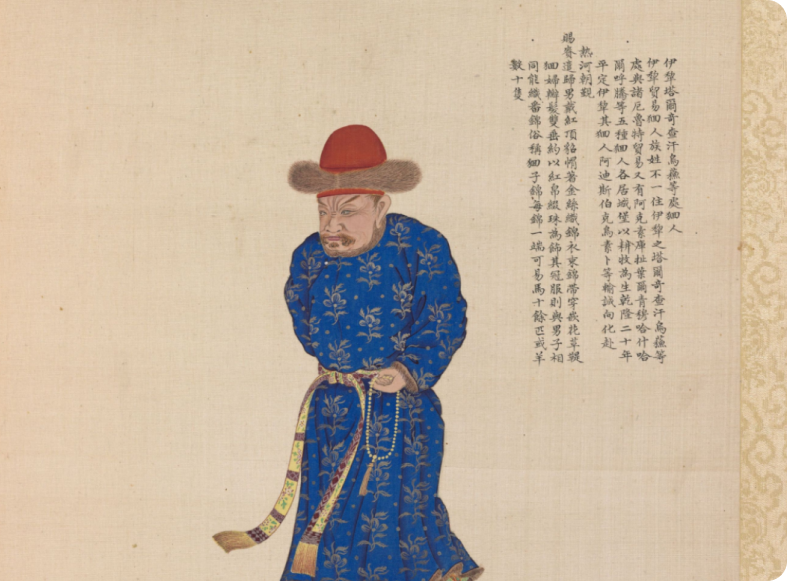 伊犂塔爾奇查汗烏蘓等處廻人
伊犂貿易廻人族姓不一住伊犂之塔爾奇查汗烏蘓等
處與諸厄魯特貿易又有阿克素庫扯葉爾青穆哈什哈
爾呼騰等五種廻人各居城堡以耕牧為生乾隆二十年
平定伊犂其廻人阿迪斯伯克烏素卜等輸誠向化赴
熱河朝覲
賜賚遣歸男戴紅頂貂帽著金絲織錦衣束錦帶穿嵌花革鞮
廻婦辮髮雙垂約以紅帛綴珠為飾其冠服則與男子相
同能織番錦俗稱廻子錦每錦一端可易馬十餘匹或羊
數十隻